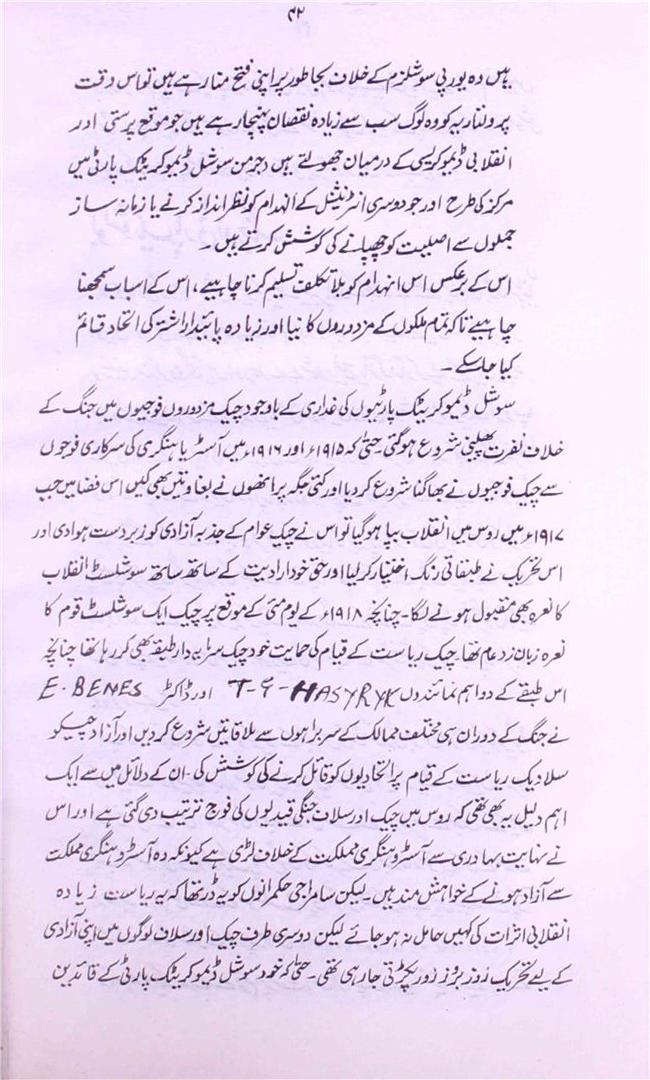 ۴۲
ہیں وہ یورپی سوشلزم کے خلاف بجا طور پر اپنی فتح منا رہے ہیں تو اس وقت
پرولتاریہ کو وہ لوگ سب سے زیادہ نقصان پہنچا رہے ہیں جو موقع پرستی اور
انقلابی ڈیموکریسی کے درمیان جھولتے ہیں (جرمن سوشل ڈیموکریٹک پارٹی میں
مرکز کی طرح اور جو دوسری انٹرنیشنل کے انہدام کو نظر انداز کرنے یا زمانہ ساز
جملوں سے اصلیت کو چھپانے کی کوشش کرتے ہیں۔
اس کے برعکس اس انہدام کو بلا تکلف تسلیم کرنا چاہیے، اس کے اسباب سمجھنا
چاہیئے تاکہ تمام ملکوں کے مزدوروں کا نیا اور زیادہ پائیدار اشتراکی اتحاد قائم
کیا جا سکے۔
سوشل ڈیموکریٹک پارٹیوں کی غداری کے باوجود چیک مزدوروں فوجیوں میں جنگ کے
خلاف نفرت پھیلنی شروع ہوگئی حتیٰ کہ ۱۹۱۵ء اور ۱۹۱۶ء میں آسٹریا ہنگری کی سرکاری فوجوں
سے چیک فوجیوں نے بھاگنا شروع کر دیا اور کئی جگہ پر انھوں نے بغاوتیں بھی کیں اس فضا میں جب
۱۹۱۷ء میں روس میں انقلاب بپا ہوگیا تو اس نے چیک عوام کے جذبہ آزادی کو زبردست ہوا دی اور
اس تحریک نے طبقاتی رنگ اختیار کر لیا اور حق خود ارادیت کے ساتھ ساتھ سوشلسٹ انقلاب
کا نعرہ بھی مقبول ہونے لگا۔ چنانچہ ۱۹۱۸ء کے یوم مئی کے موقع پر چیک ایک سوشلسٹ قوم کا
نعرہ زبان زد عام تھا۔ چیک ریاست کے قیام کی حمایت خود چیک سرمایہ دار طبقہ بھی کر رہا تھا چنانچہ
اس طبقے کے دو اہم نمائندوں T-G-HASYRYK اور ڈاکٹر E. BENES
نے جنگ کے دوران ہی مختلف ممالک کے سربراہوں سے ملاقاتیں شروع کر دیں اور آزاد چیکو
سلاویک ریاست کے قیام پر اتحادیوں کو قائل کرنے کی کوشش کی۔ ان کے دلائل میں سے ایک
اہم دلیل یہ بھی تھی کہ روس میں چیک اور سلاف جنگی قیدیوں کی فوج ترتیب دی گئی ہے اور اس
نے نہایت بہادری سے آسٹرو ہنگری مملکت کے خلاف لڑی ہے کیونکہ وہ آسٹرو ہنگری مملکت
سے آزاد ہونے کے خواہش مند ہیں۔ لیکن سامراجی حکمرانوں کو یہ ڈر تھا کہ یہ ریاست زیادہ
انقلابی اثرات کی کہیں حامل نہ ہو جائے لیکن دوسری طرف چیک اور سلاف لوگوں میں اپنی آزادی
کے لیے تحریک روز بروز زور پکڑتی جا رہی تھی۔ حتیٰ کہ خود سوشل ڈیموکریٹک پارٹی کے قائدین